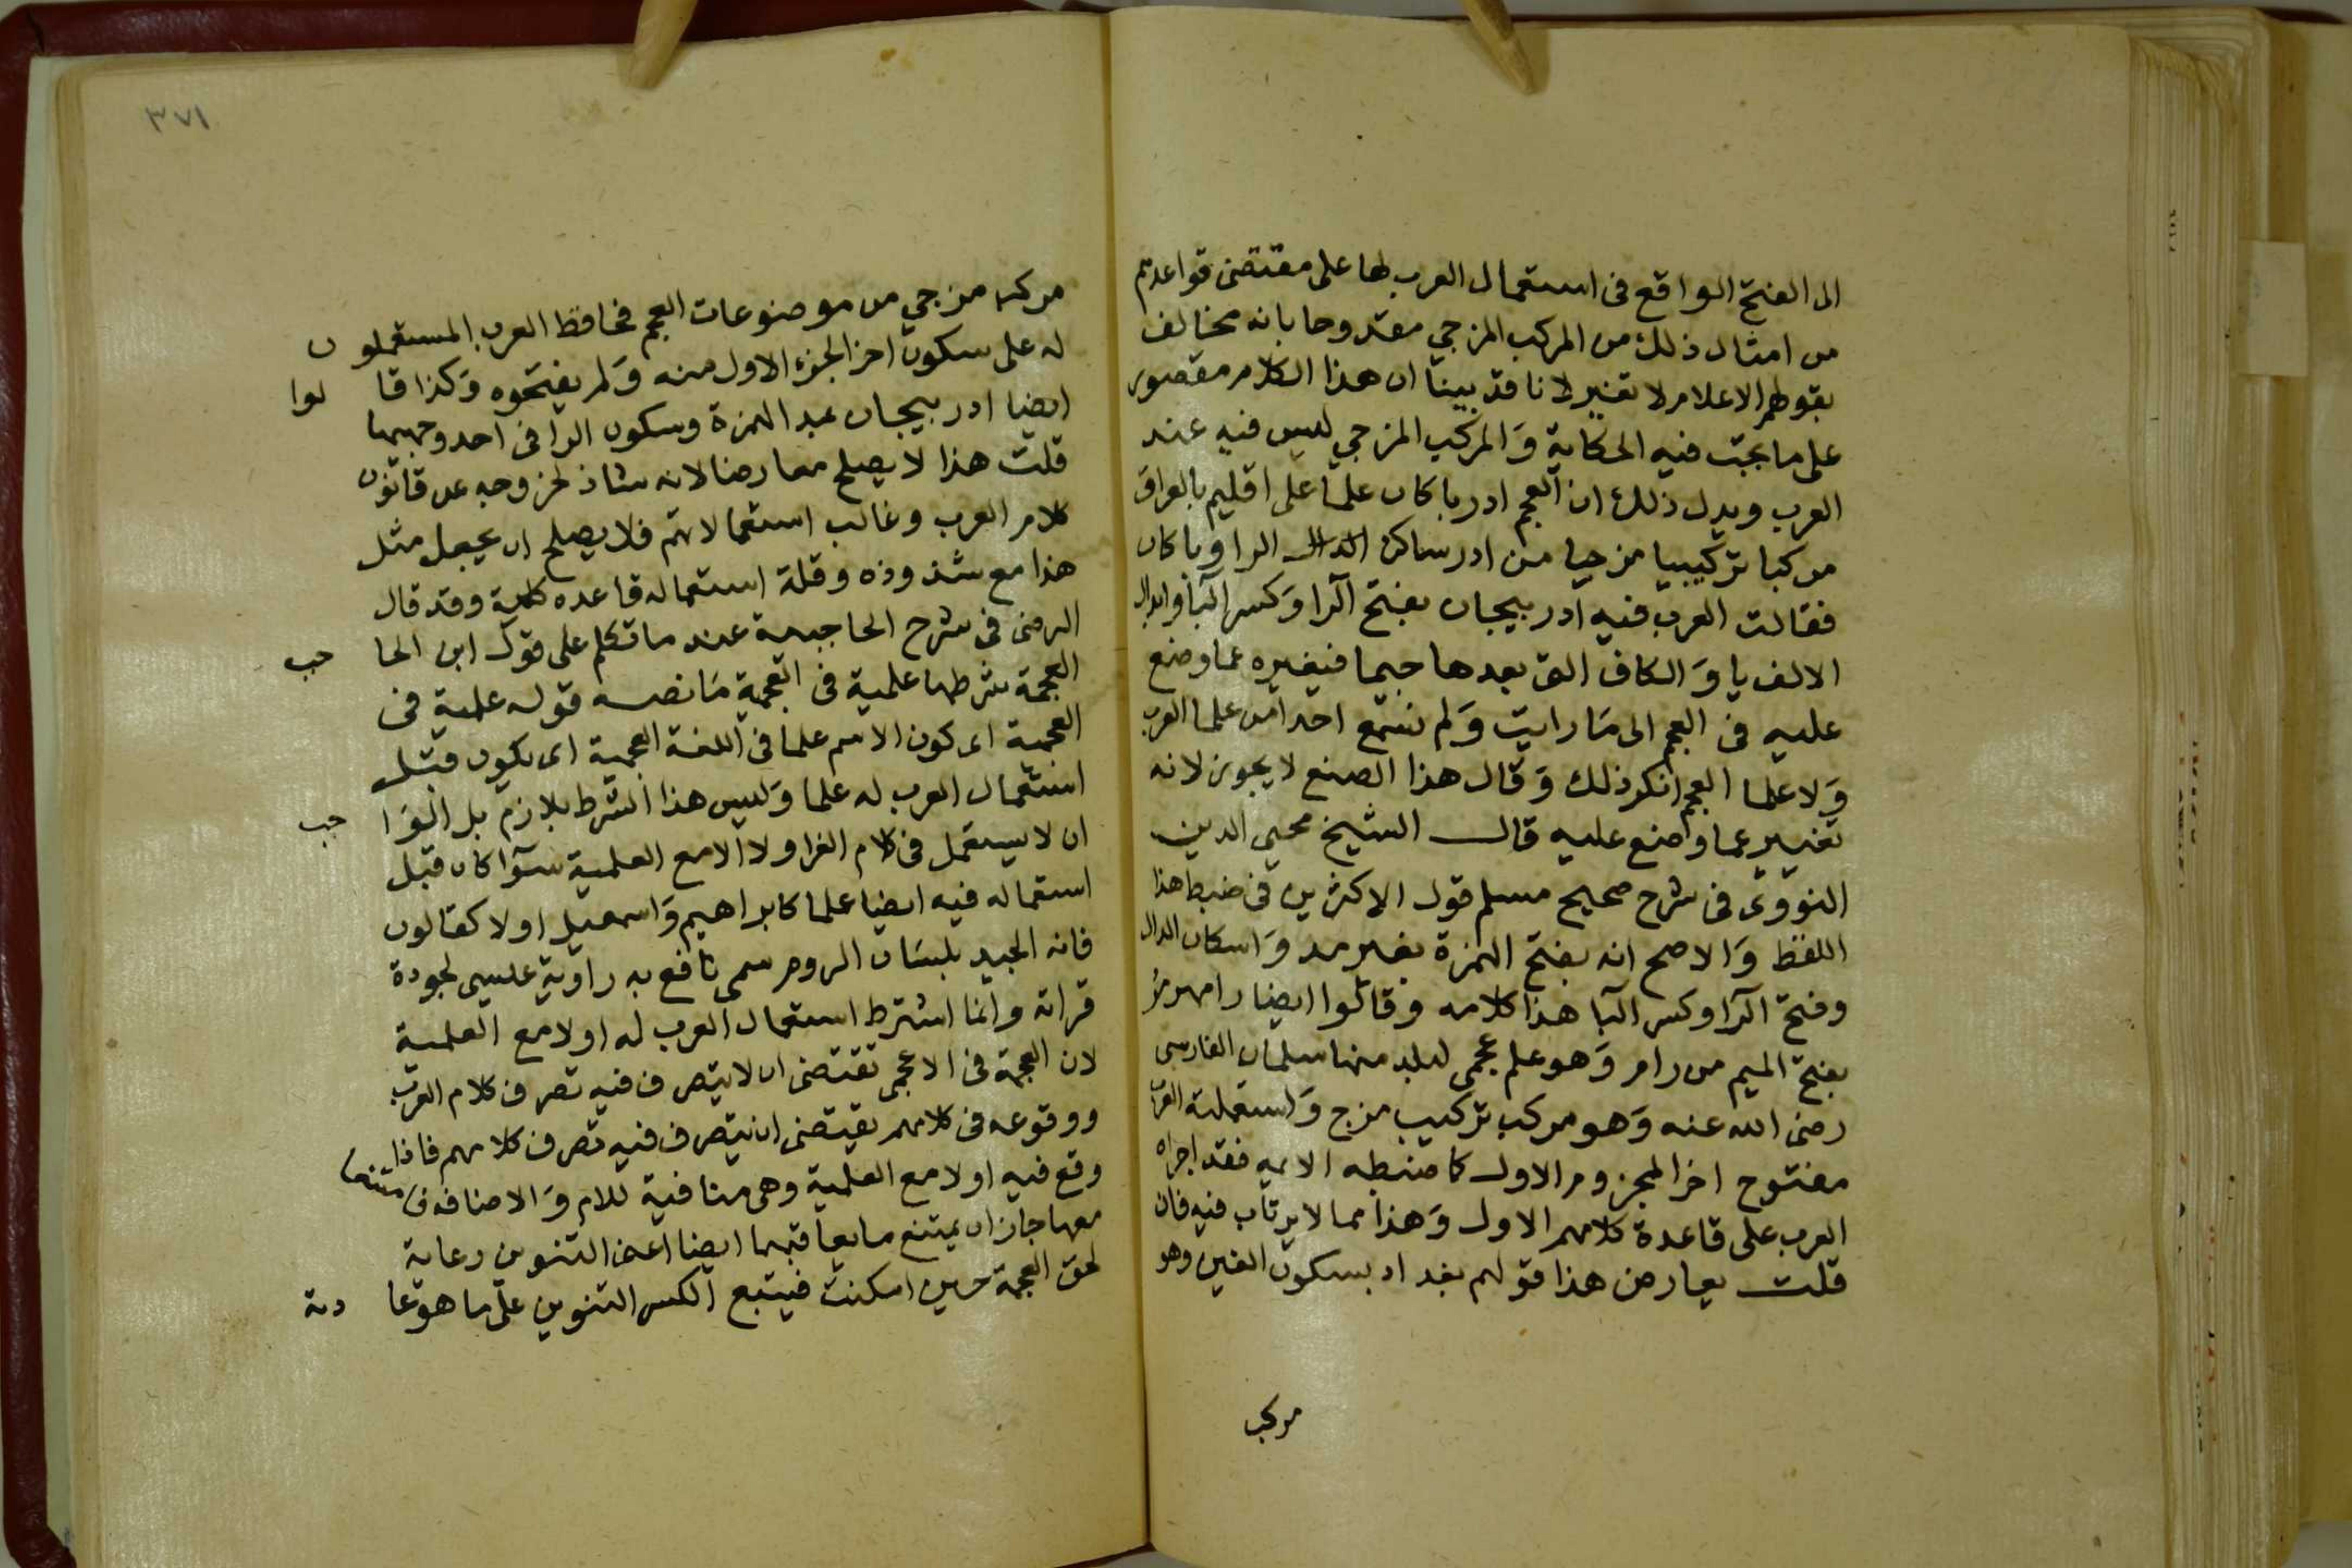 الى الفتح الواقع فى استعمال العرب لها على مقتضى قواعدهم
من امثال ذلك من المركب المزجي مقدوحا بانه مخالف
بقولهم الاعلام لا تغير لانا قد بينا ان هذا الكلام مقصور
على ما يجب فيه الحكاية وَالمركب المزجي ليس فيه عند
العرب ويدل ذلك ان العجم ادرباكان علما على اقليم بالعراق
مركبا تركيبيا مزجيا من ادر ساكن الدال الرا وباكان
فقالت العرب فيه ادربيجان بفتح الرا وَكسر البا وابدال
الالف يا وَالكاف التى بعدها جيما فيغيره عما وضع
عليه فى العجم الى مَا رايت وَلم نسمع احدا من علما العرب
وَلا علما العجم انكر ذلك وَقال هذا الصنع لا يجوز لانه
تغيير عما واضع عليه قال الشيخ محيي الدين
النووى فى شرح صحيح مسلم قول الاكثرين فى ضبط هذا
اللفظ وَالاصح انه بفتح الهمزة بغير مد وَاسكان الدال
وفتح الرا وكسر البا هذا كلامه وقالوا ايضا رامهرمز
بفتح الميم من رام وَهو علم عجمى لبلد منها سلمان الفارسى
رضى الله عنه وَهو مركب تركيب مزج وَاستعملته العرب
مفتوح اخر المجزوم الاول كما ضبطه الايمه فقد اجراه
العرب على قاعدة كلامهم الاول وَهذا مما لا يرتاب فيه فان
قلت يعارض هذا قولهم بغداد بسكون الغين وهو
مركب
٣٧١
مركب مزجي من موضوعات العجم فحافظ العرب المستعملون
له على سكون اخر الجزء الاول منه وَلم يفتحوه وَكذا قالوا
ايضا ادربيجان بمد الهمزة وسكون الرا فى احد وجهيها
قلت هذا لا يصلح معارضا لانه شاذ لخروجه عن قانون
كلام العرب وغالب استعمالاتهم فلا يصلح ان يجعل مثل
هذا مع شذوذه وقلة استعماله قاعده كلية وقد قال
الرضى فى شرح الحاجبية عند ما تكلم على قول ابن الحاجب
العجمة شرطها علمية فى العجمية مَا نصه قوله علمية فى
العجمية اى كون الاسم علما فى اللغة العجمية اى يكون قبل
استعمال العرب له علما وَليس هذا الشرط بلازم بل الواجب
ان لا يستعمل فى كلام العرب اولا الا مع العلمية سوآ كان قبل
استعماله فيه ايضا علما كابراهيم وَاسمعيل اولا كقالون
فانه الجيد بلسَان الروم سمى نافع به راوية عيسى لجودة
قراته وانما اشترط استعمال العرب له اولا مع العلمية
لان العجمة فى الاعجمى تقتضى ان لا يتصرف فيه تصرف كلام العرب
ووقوعه فى كلامهم يقتضى ان يتصرف فيه تصرف كلامهم فاذا
وقع فيه اولا مع العلمية وهى منافية للام وَالاضافه فامتنعا
معها جاز ان يمتنع ما يعاقبهما ايضا اعنى التنوين رعاية
لحق العجمة حين امكنت فيتبع الكسر التنوين على ما هو عادته